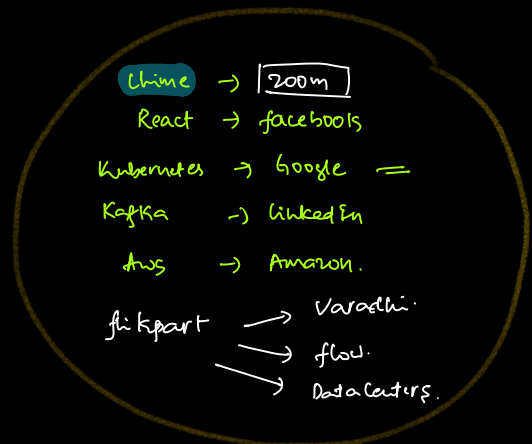 Chime → zoom
React → facebook
Kubernetes → Google =
Kafka → LinkedIn
Aws → Amazon.
flikpart → Varadhi.
→ flow.
→ Data Centers.